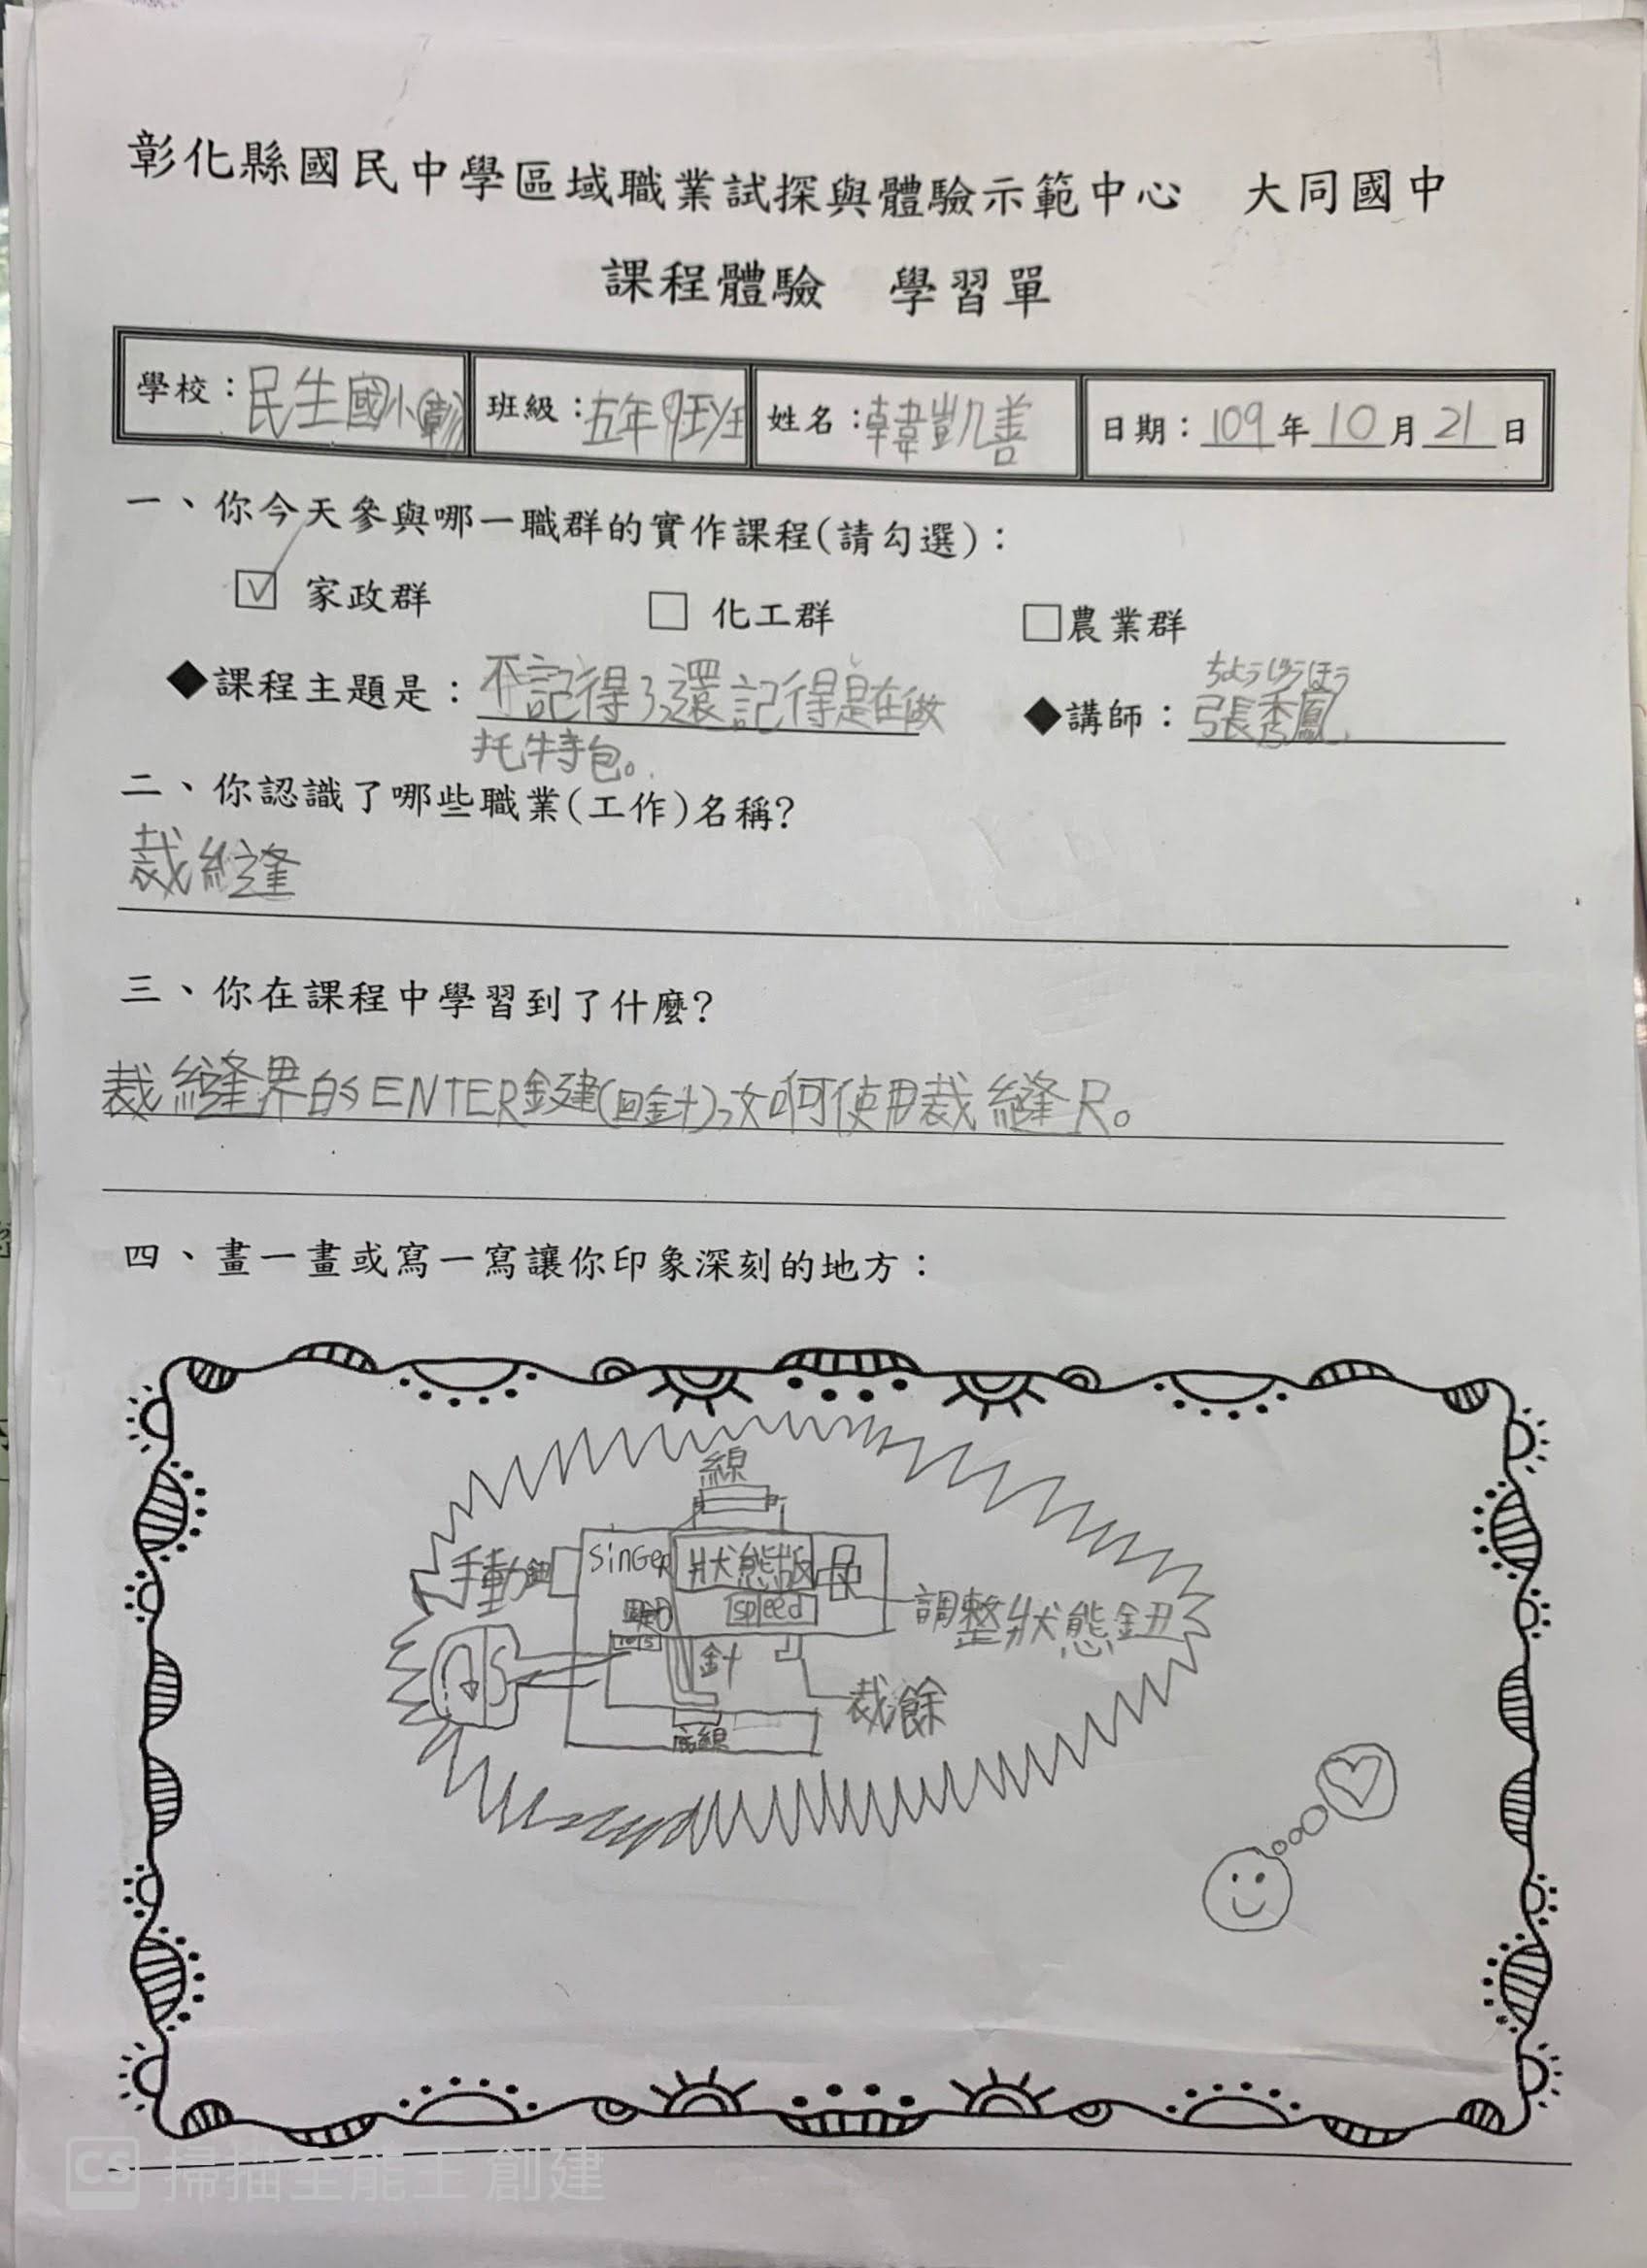 彰化縣國民中學區域職業試探與體驗示範中心 大同國中
課程體驗 學習單
學校：民生國小(彰) 班級：五年班 姓名：韓凱善 日期：109年10月21日
一、你今天參與哪一職群的實作課程(請勾選)：
家政群 化工群 農業群
ちょうしゅうほう
◆課程主題是：不記得了,還記得是在做 ◆講師：張秀鳳
托特包。
二、你認識了哪些職業(工作)名稱?
裁縫
三、你在課程中學習到了什麼?
裁縫界的ENTER鍵(回針),如何使用裁縫尺。
四、畫一畫或寫一寫讓你印象深刻的地方：
線
手動鈕 SinGer 狀態版
speed 調整狀態鈕
針
S 裁餘
底線
CS 掃描全能王 創建